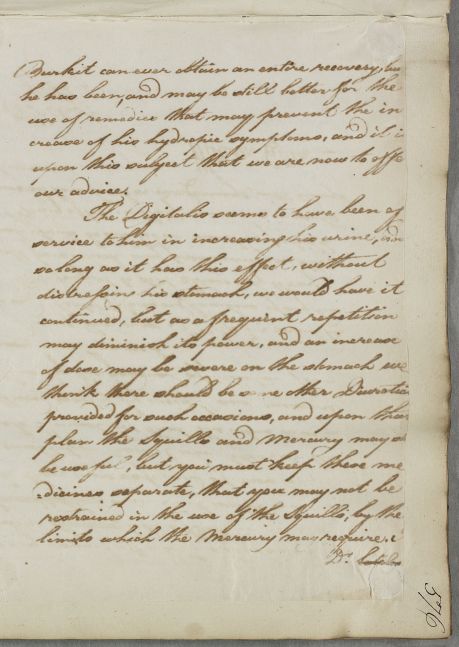 Durkit can ever obtain an entire recovery, but
he has been, and may be still better for the
use of remedies that may prevent the in
crease of his hydropic symptoms, and it is
upon this subject that we are now to offe
our advice.
The Digitalis seems to have been of
service to him in increasing his urine, an
so long as it has this effect, without
distressing his stomach, we would have it
continued, but as a frequent repetition
may diminish its power, and an increase
of dose may be severe on the stomach we
think there should be some other Diuretic
provided for such occasions, and upon that
plan the Squills and Mercury may
be useful, but you must keep these me
dicines separate, that you may not be
restrained in the use of the Squills, by the
limits which the Mercury may require.
Dr.